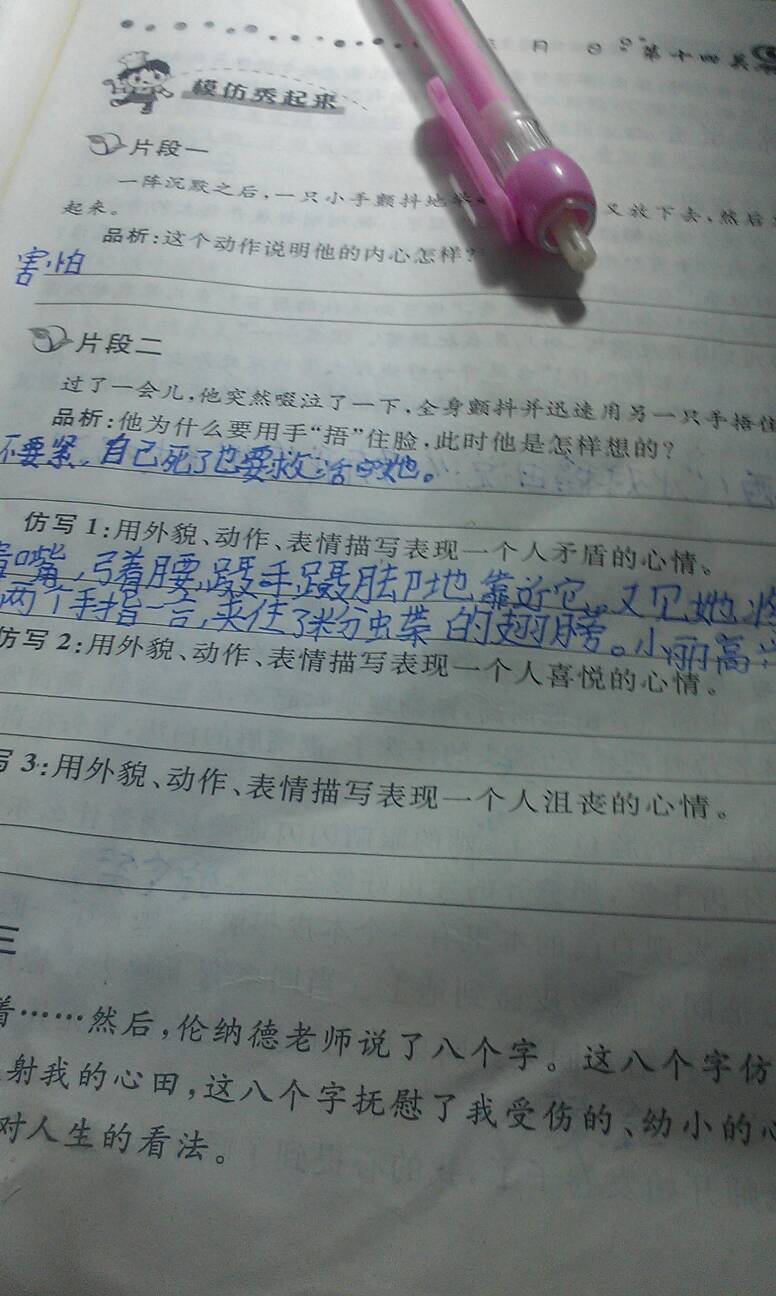 月 日 第十四关
模仿秀起来
片段一
一阵沉默之后,一只小手颤抖地举 又放下去,然后
起来。
品析:这个动作说明他的内心怎样?
害怕
片段二
过了一会儿,他突然啜泣了一下,全身颤抖并迅速用另一只手捂住
品析:他为什么要用手“捂”住脸,此时他是怎样想的?
不要紧,自己死了也要救活她。
仿写1:用外貌、动作、表情描写表现一个人矛盾的心情。
嘴,弓着腰,蹑手蹑脚地靠近它。又见她
两个手指一合,夹住了粉蝶的翅膀。小丽高兴
仿写2:用外貌、动作、表情描写表现一个人喜悦的心情。
写3:用外貌、动作、表情描写表现一个人沮丧的心情。
三
着……然后,伦纳德老师说了八个字。这八个字仿
射我的心田,这八个字抚慰了我受伤的、幼小的心
对人生的看法。